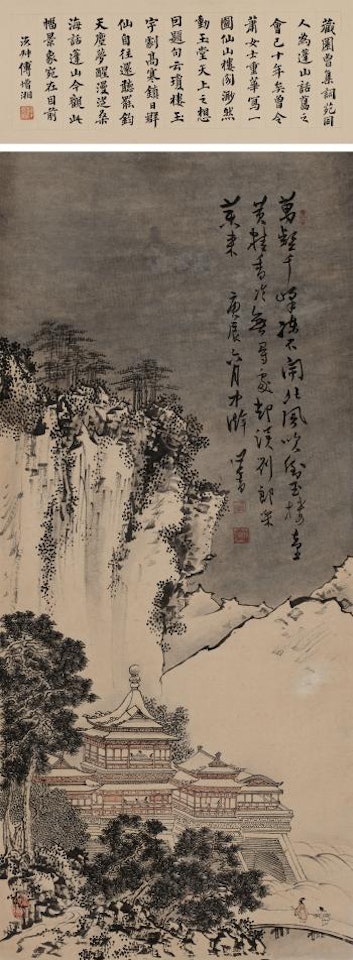 藏園曾集詞苑同
人為蓬山話舊之
會已十年矣曾令
蕭女士重華寫一
圖仙山樓閣渺然
動玉堂天上之想
因題句云瓊樓玉
宇割高寒鎮日群
仙自往還聽罷鈞
天塵夢醒漫從桑
海話蓬山今觀此
幅景象宛在目前
沅叔傅增湘
萬壑千峰不開北風吹玉樓臺
香冷無尋處却劉郎采
藥來 庚辰六月 心畬